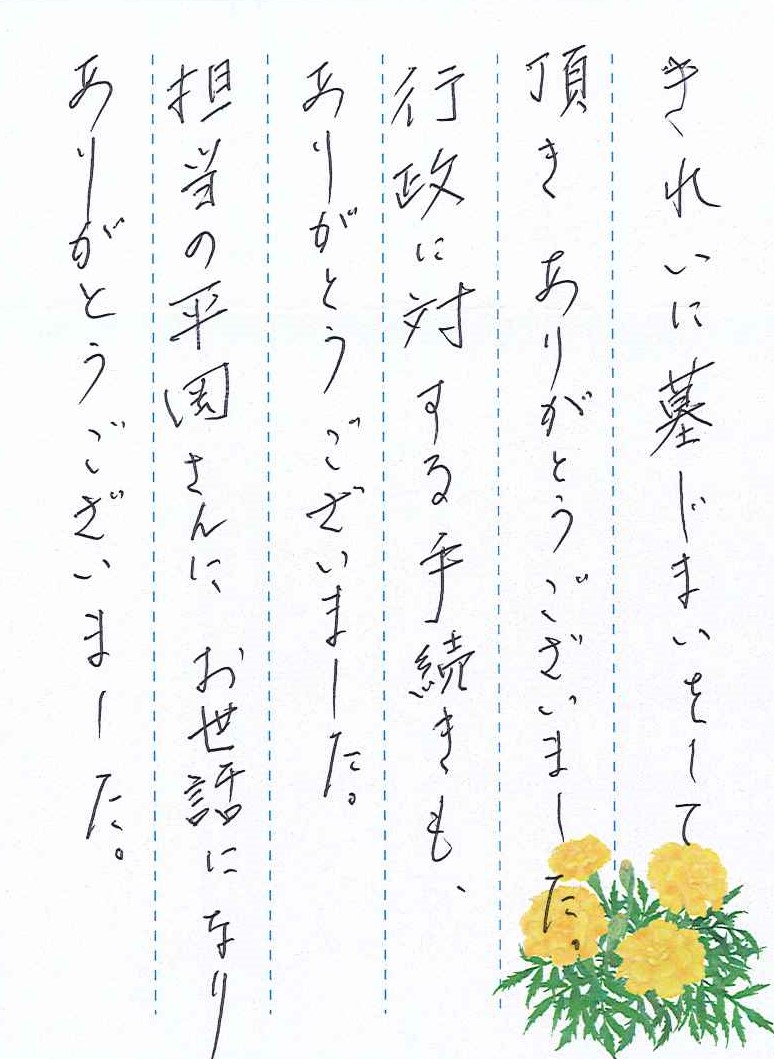 きれいに墓じまいをして
頂き ありがとうございました。
行政に対する手続きも、
ありがとうございました。
担当の平岡さんに、お世話になり
ありがとうございました。